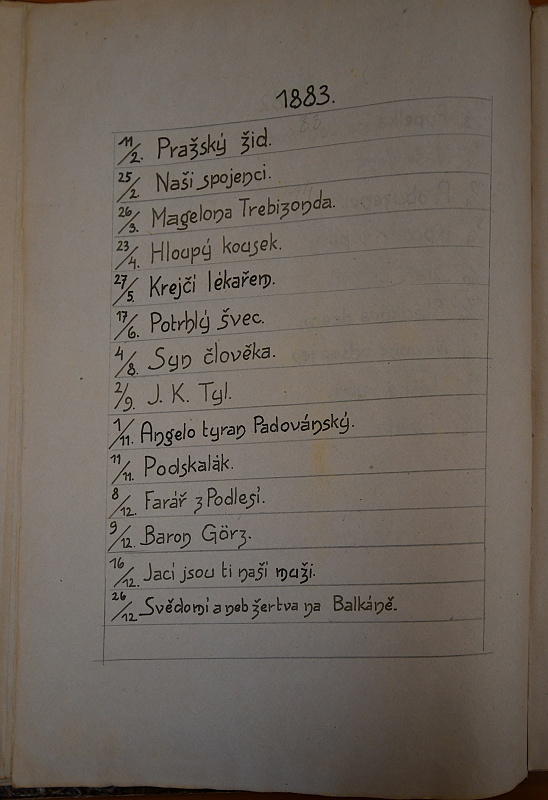 1883.
11/2. Pražský žid.
25/2. Naši spojenci.
26/3. Magelona Trebizonda.
23/4. Hloupý kousek.
27/5. Krejčí lékařem.
17/6. Potrhlý švec.
4/8. Syn člověka.
2/9. J. K. Tyl.
1/11. Angelo tyran Padovánský.
11/11. Podskalák.
8/12. Farář z Podlesí.
9/12. Baron Görz.
16/12. Jací jsou ti naší muži.
26/12 Svědomí aneb žertva na Balkáně.